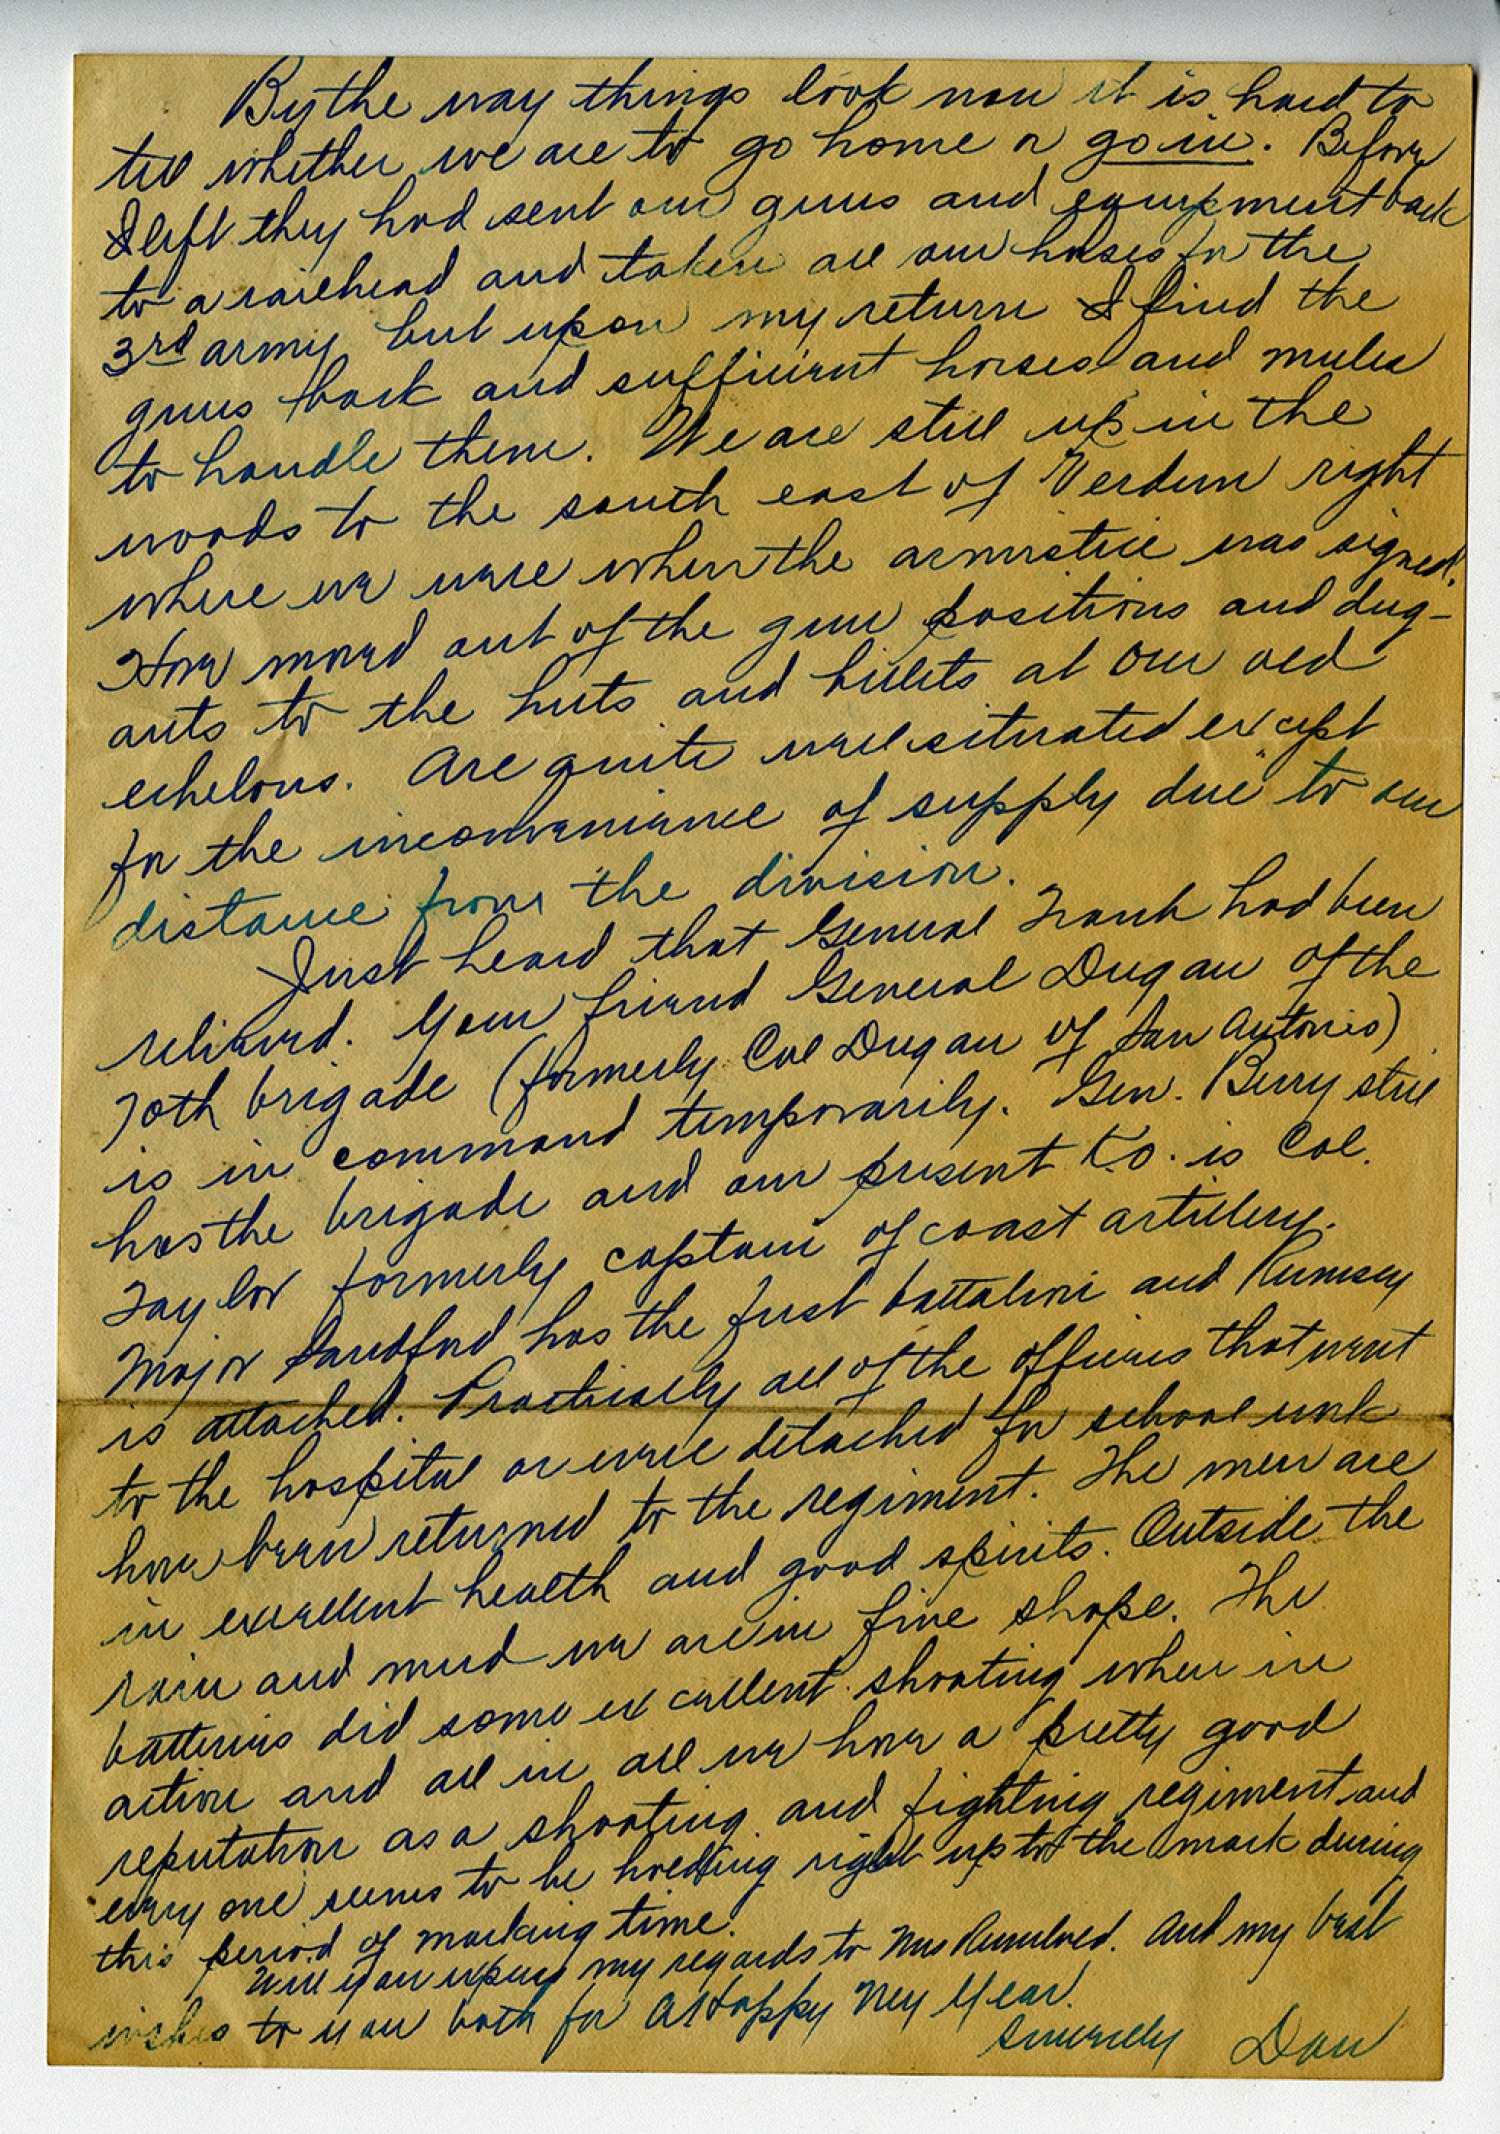 By the way things look now it is hard to
tell whether we are to go home or go in. Before
I left they had sent our guns and equipment back
to a railhead and taken all our horses for the
3rd army but upon my return I find the
guns back and sufficient horses and mules
to handle them. We are still up in the
woods to the south east of Verdun right
where we were when the armistice was signed.
Have moved out of the gun positions and dug-
outs to the huts and billets at our old
echelons. Are quite well situated except
for the inconvenience of supply due to our
distance from the division.
Just heard that General Traub had been
relieved. Your friend General Dugan of the
70th brigade (formerly Col Dugan of San Antonio)
is in command temporarily. Gen. Berry still
has the brigade and our present K.O. is Col.
Taylor formerly captain of coast artillery.
Major Sandford has the first battalion and Rumsey
is attached. Practically all of the officers that went
to the hospital or were detached for school work
have been returned to the regiment. The men are
in excellent health and good spirits. Outside the
rain and mud we are in fine shape. The
batteries did some excellent shooting when in
action and all in all we have a pretty good
reputation as a shooting and fighting regiment and
every one seems to be holding right up to the mark during
this period of marking time.
Will you express my regards to Mrs And my best
wishes to you both for A Happy New Year.
Sincerely Dan